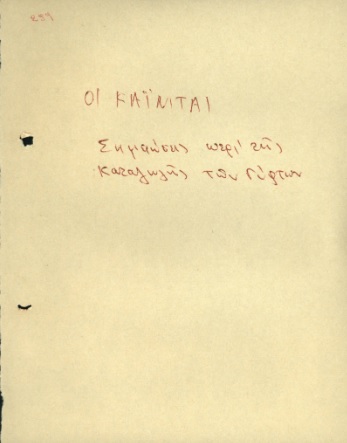 ΟΙ ΚΑΪΝΙΤΑΙ
Σημειώσεις περί τῆς
καταγωγῆς τῶν Γύφτων